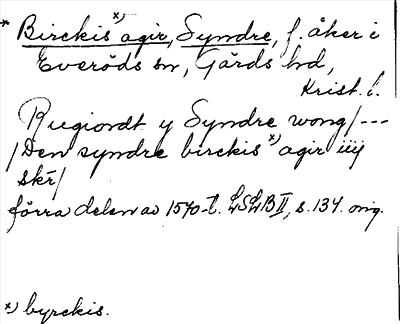 * Birckis x) agir, Syndre, f. åker i
Everöds sn, Gärds hd,
Krist. l.
Rugiordt y Syndre wong/---
/Den syndre birckis x) agir iiij
skr/
förra delen av 1570-t. LSLB II, s. 134. orig.
x) byrckis.